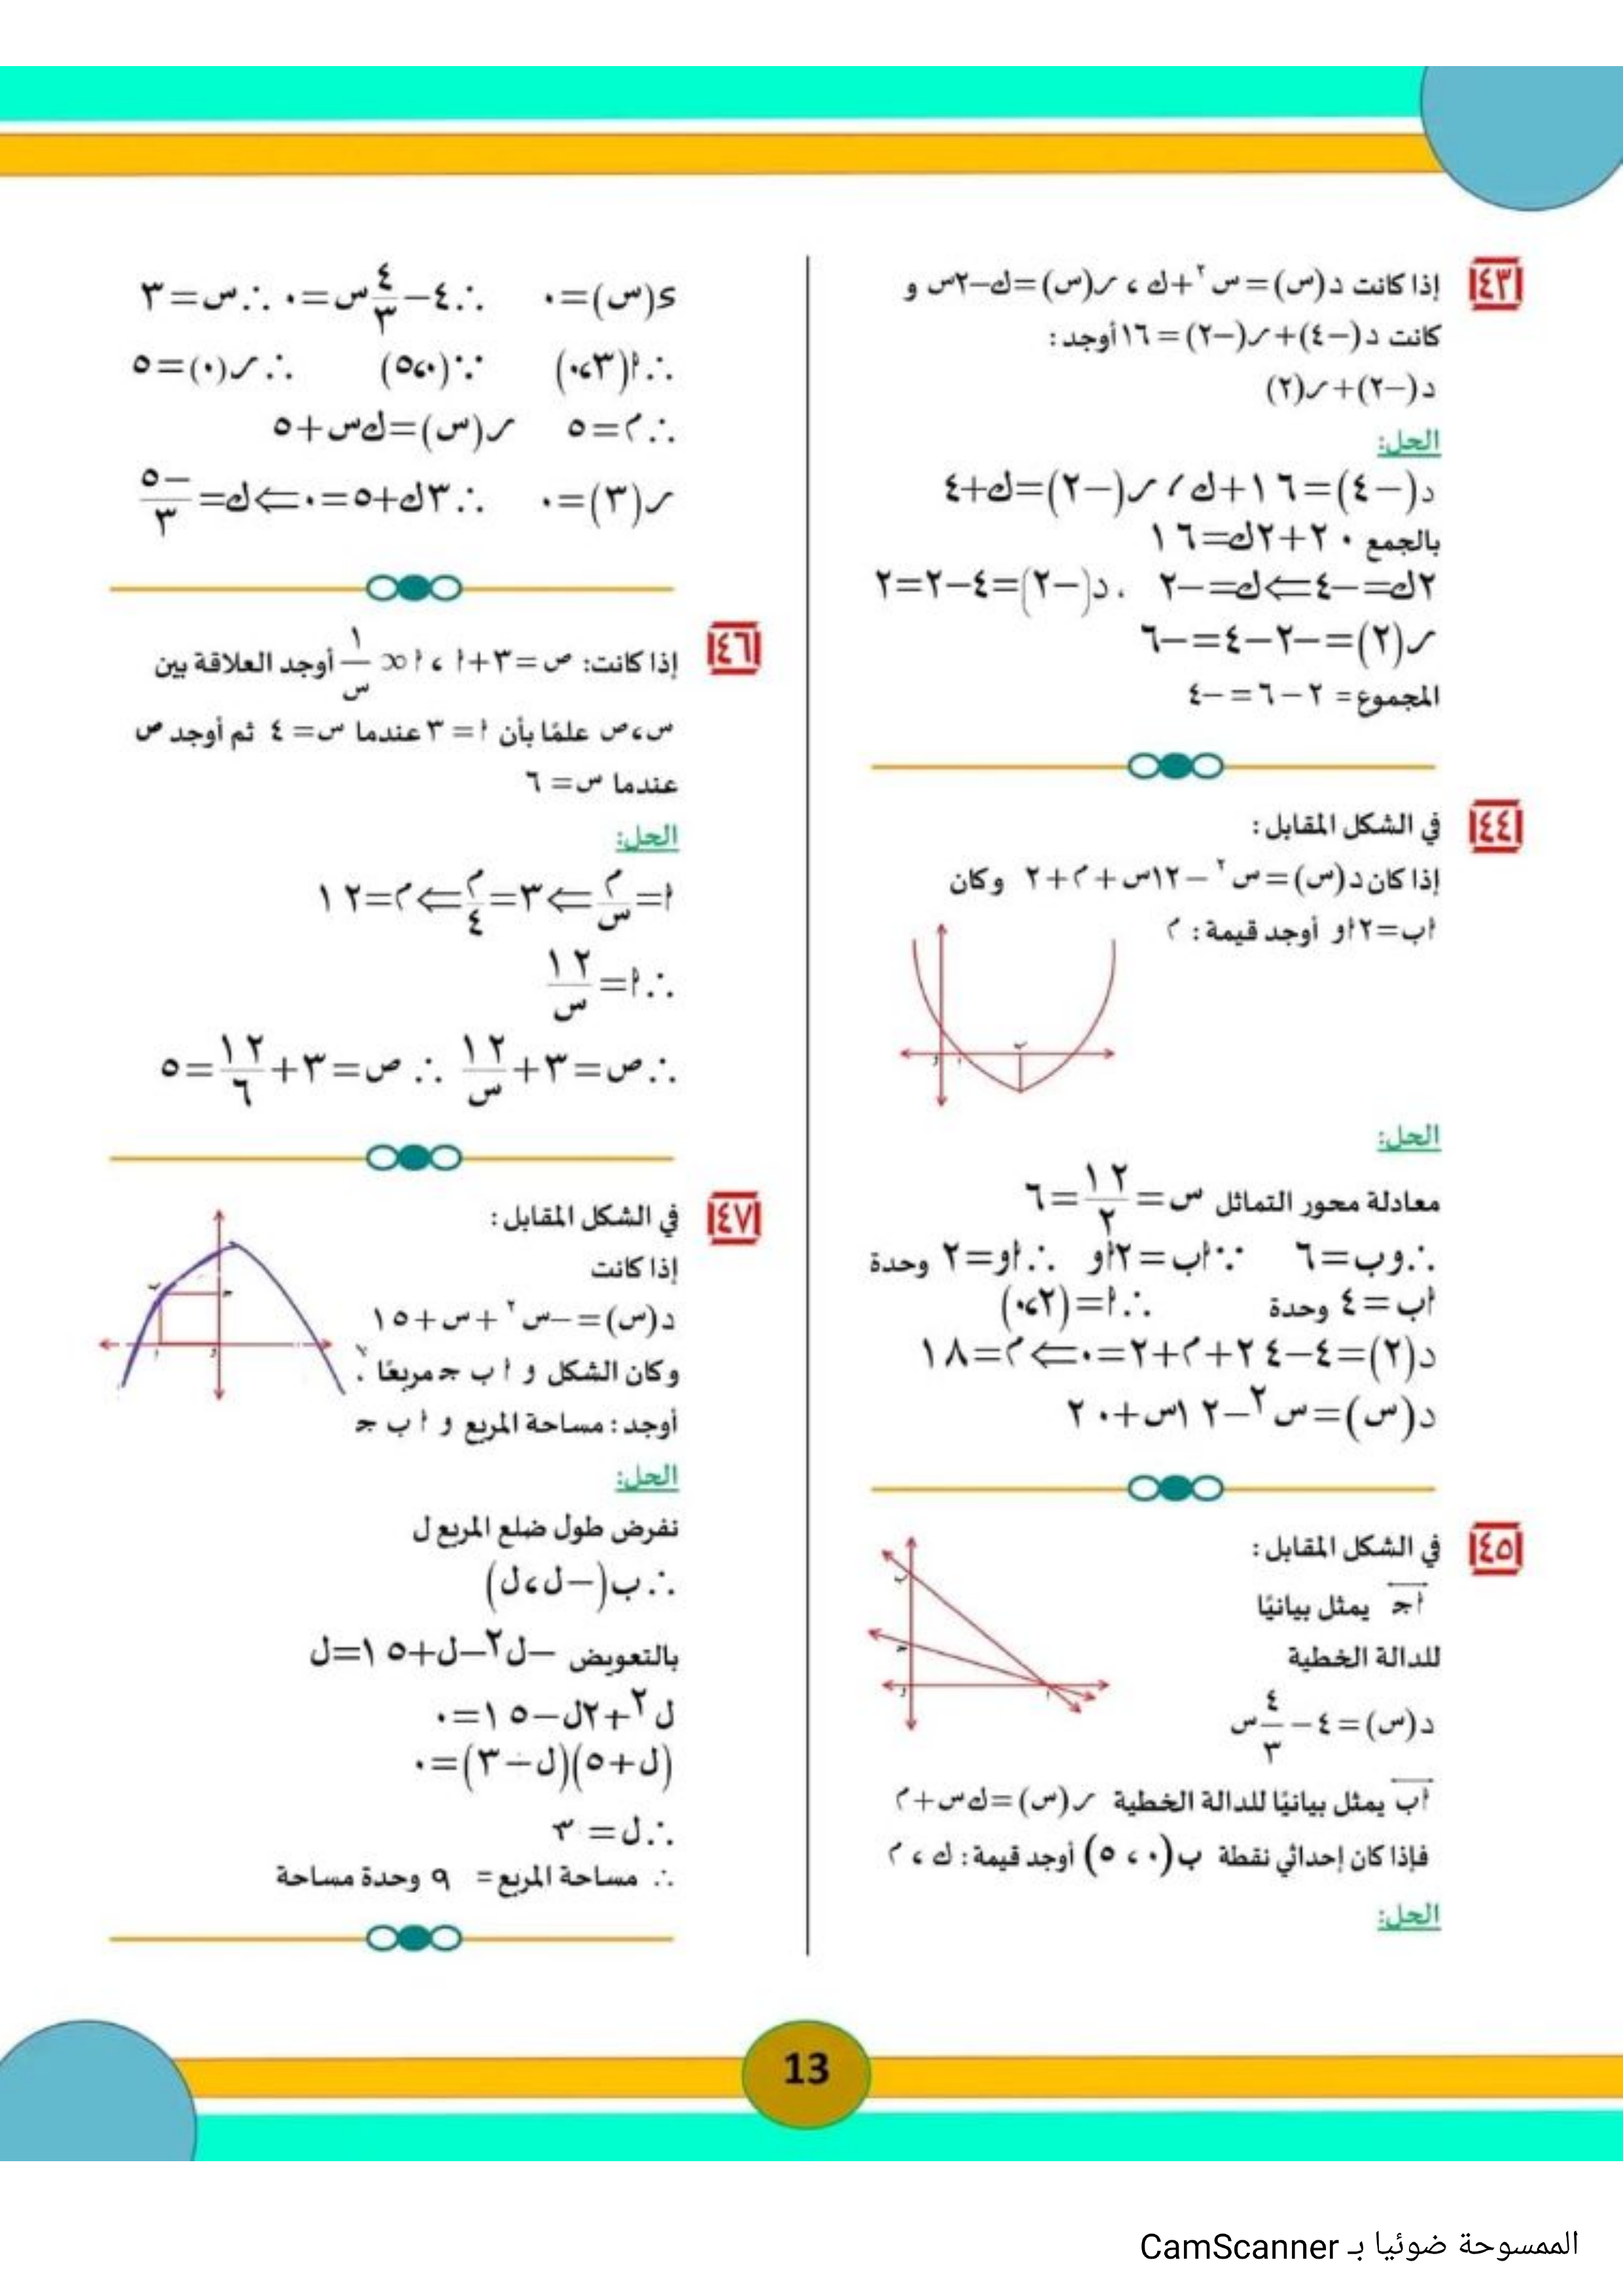 ٤٣ إذا كانت د(س) = س٢ + ك ، ر(س) = ك − ٢س و
كانت د(−٤) + ر(−٢) = ١٦ أوجد :
د(−٢) + ر(٢)
الحل:
د(−٤) = ١٦ + ك ، ر(−٢) = ك + ٤
بالجمع ٢٠ + ٢ك = ١٦
٢ك = −٤ ⇐ ك = −٢ . د(−٢) = ٤ − ٢ = ٢
ر(٢) = −٢ − ٤ = −٦
المجموع = ٢ − ٦ = −٤
٤٤ في الشكل المقابل :
إذا كان د(س) = س٢ − ١٢س + م + ٢ وكان
أب = ٢أو أوجد قيمة : م
ب
و أ
الحل:
معادلة محور التماثل س = ١٢/٢ = ٦
∴ وب = ٦ ∵ أب = ٢أو ∴ أو = ٢ وحدة
أب = ٤ وحدة ∴ أ = (٢، ٠)
د(٢) = ٤ − ٢٤ + م + ٢ = ٠ ⇐ م = ١٨
د(س) = س٢ − ١٢س + ٢٠
٤٥ في الشكل المقابل :
أج يمثل بيانيًا
للدالة الخطية
د(س) = ٤ − ٤/٣ س
ب
ج
و أ
أب يمثل بيانيًا للدالة الخطية ر(س) = ك س + م
فإذا كان إحداثي نقطة ب(٠ ، ٥) أوجد قيمة : ك ، م
الحل:
د(س) = ٠ ∴ ٤ − ٤/٣ س = ٠ ∴ س = ٣
∴ أ(٣، ٠) ∵ (٠، ٥) ∴ ر(٠) = ٥
∴ م = ٥ ر(س) = ك س + ٥
ر(٣) = ٠ ∴ ٣ك + ٥ = ٠ ⇐ ك = −٥/٣
٤٦ إذا كانت: ص = ٣ + أ ، أ ∝ ١/س أوجد العلاقة بين
س ، ص علمًا بأن أ = ٣ عندما س = ٤ ثم أوجد ص
عندما س = ٦
الحل:
أ = م/س ⇐ ٣ = م/٤ ⇐ م = ١٢
∴ أ = ١٢/س
∴ ص = ٣ + ١٢/س ∴ ص = ٣ + ١٢/٦ = ٥
٤٧ في الشكل المقابل :
إذا كانت
د(س) = −س٢ + س + ١٥
وكان الشكل و أ ب ج مربعًا .
أوجد : مساحة المربع و أ ب ج
ب ج
أ و
الحل:
نفرض طول ضلع المربع ل
∴ ب(−ل، ل)
بالتعويض −ل٢ − ل + ١٥ = ل
ل٢ + ٢ل − ١٥ = ٠
(ل + ٥)(ل − ٣) = ٠
∴ ل = ٣
∴ مساحة المربع = ٩ وحدة مساحة
13
الممسوحة ضوئيا بـ CamScanner